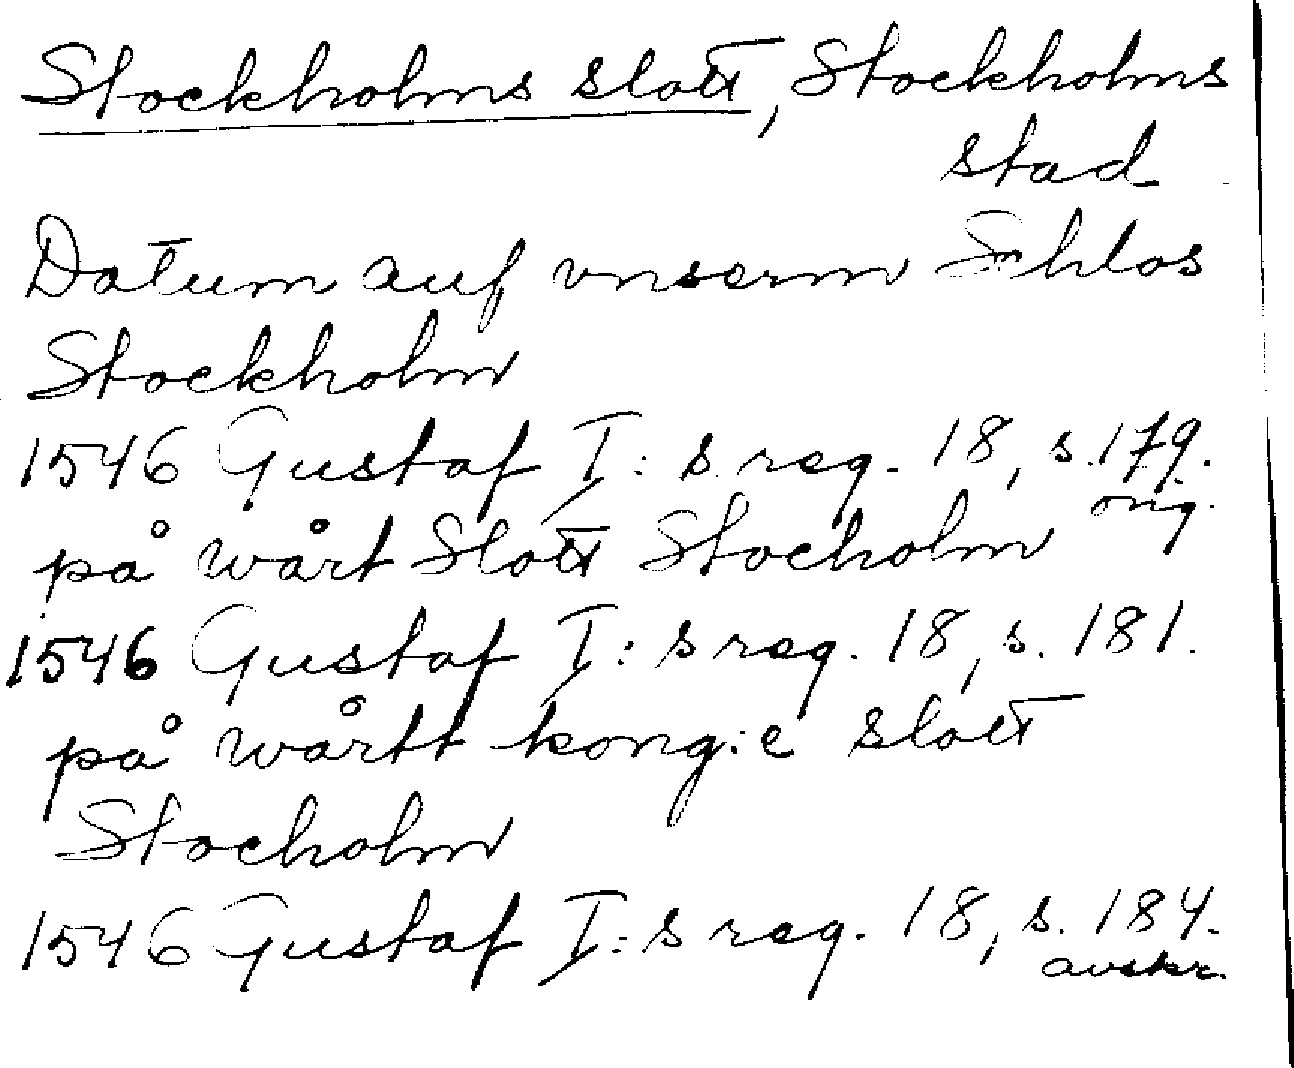 Stockholms slott, Stockholms
stad
Datum auf vnserm Schlos
Stockholm
1546 Gustaf I: s reg. 18, s. 179.
orig.
på wårt Slott Stocholm
1546 Gustaf I: s reg. 18, s. 181.
på wårtt kong:e slott
Stocholm
1546 Gustaf I: s reg. 18, s. 184.
avskr.